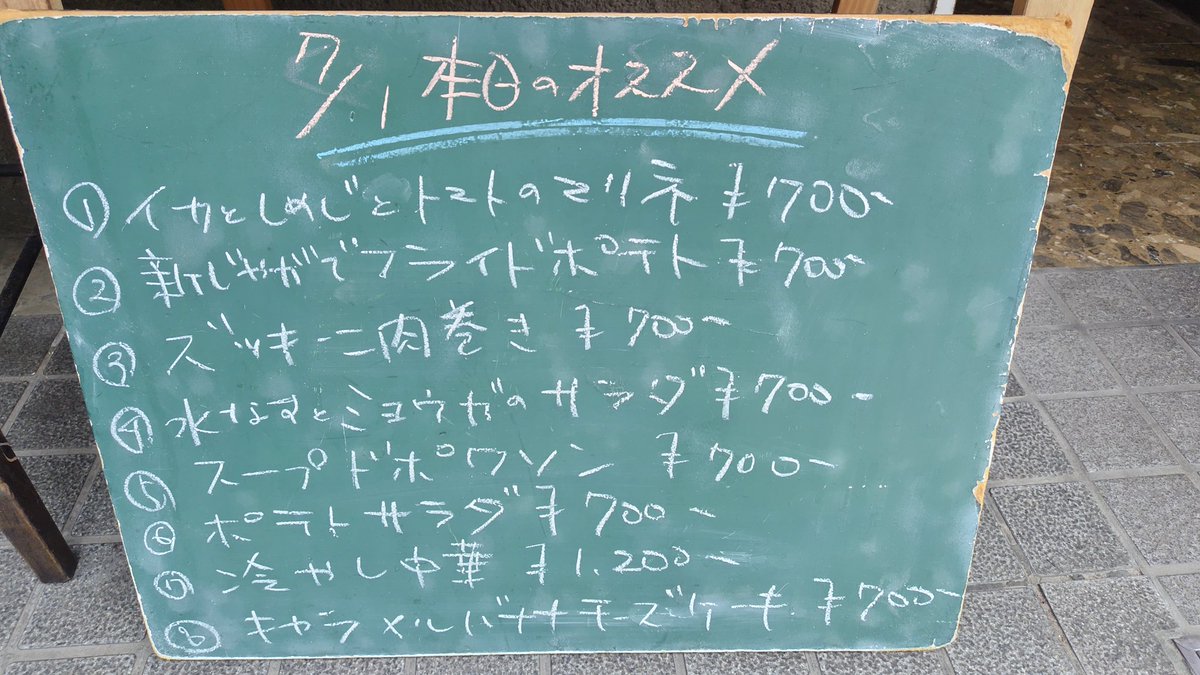 7/1 本日のオススメ
① イカとしめじとトマトのマリネ ¥700-
② 新じゃがでフライドポテト ¥700-
③ ズッキーニ肉巻き ¥700-
④ 水なすとミョウガのサラダ ¥700-
⑤ スープドポワソン ¥700-
⑥ ポテトサラダ ¥700-
⑦ 冷やし中華 ¥1.200-
⑧ キャラメルバナナチーズケーキ ¥700-